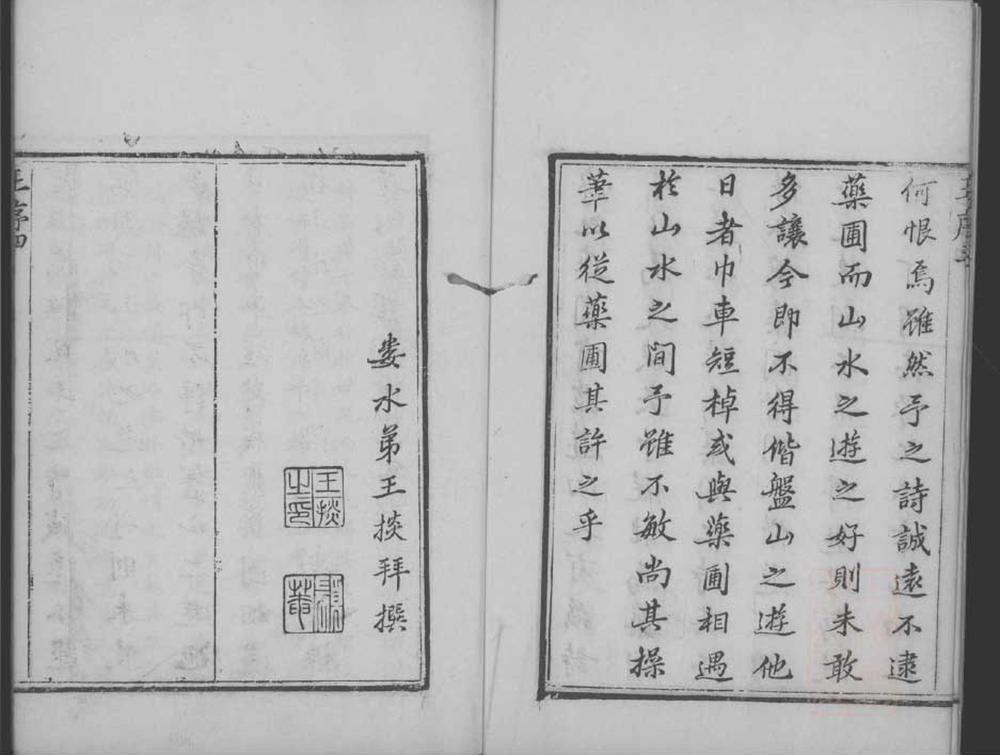 何恨焉雖然予之詩誠遠不逮
藥圃而山水之遊之好則未敢
多讓今即不得偕盤山之遊他
日者巾車短棹或與藥圃相遇
於山水之間予雖不敏尚其操
華以從藥圃其許之乎
婁水弟王掞拜撰
王掞
之印
王序四